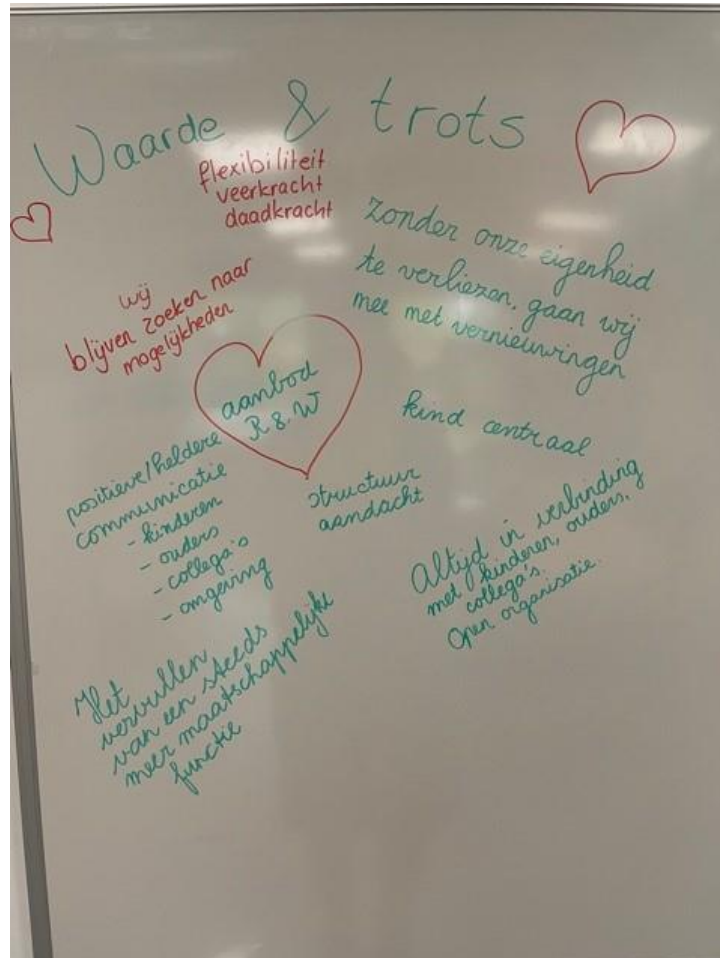 Waarde & trots
flexibiliteit
veerkracht
daadkracht
zonder onze eigenheid
te verliezen, gaan wij
mee met vernieuwingen
wij
blijven zoeken naar
mogelijkheden
aanbod
R & W
kind centraal
positieve/heldere
communicatie
- kinderen
- ouders
- collega's
- omgeving
structuur
aandacht
Altijd in verbinding
met kinderen, ouders,
collega's.
Open organisatie.
Het
vervullen
van een steeds
meer maatschappelijke
functie